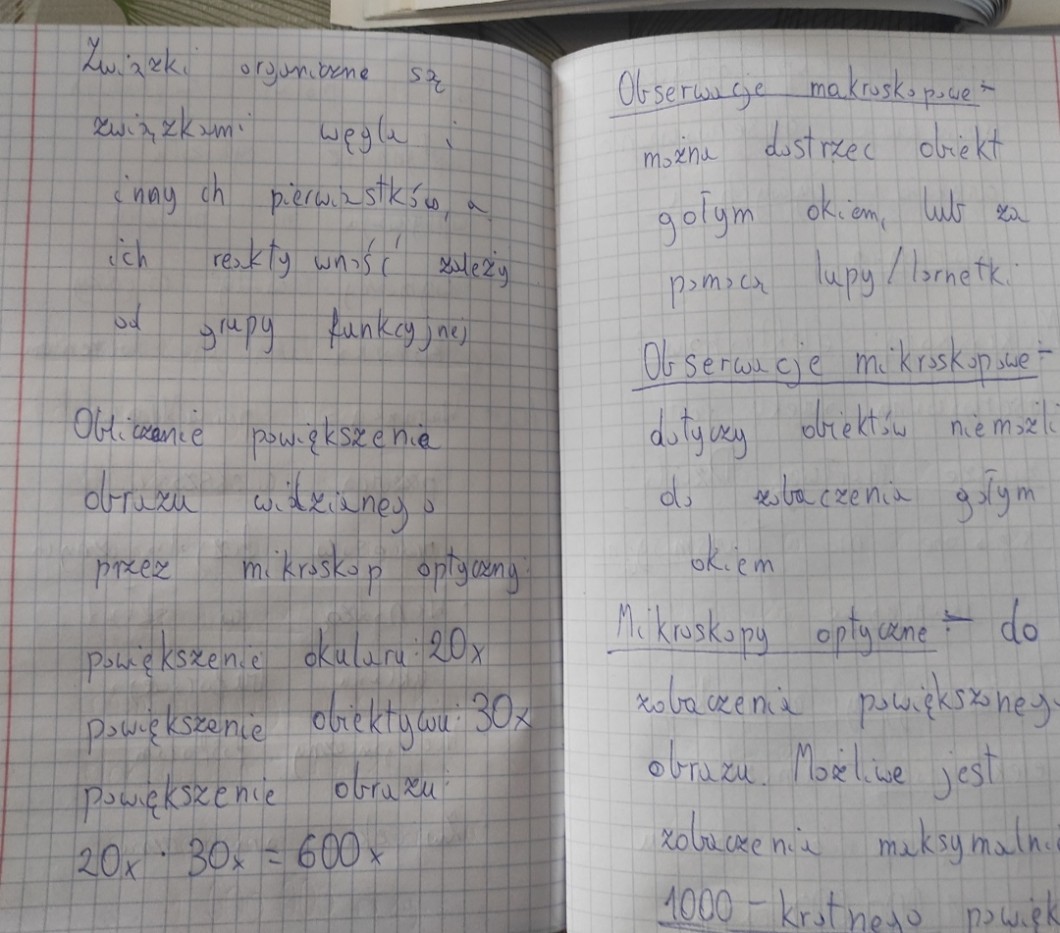 Związki organiczne są
związkami węgla i
innych pierwiastków, a
ich reaktywność zależy
od grupy funkcyjnej
Obliczanie powiększenia
obrazu widzianego
przez mikroskop optyczny:
powiększenie okularu: 20x
powiększenie obiektywu: 30x
powiększenie obrazu:
20x · 30x = 600x
Obserwacje makroskopowe -
można dostrzec obiekt
gołym okiem, lub za
pomocą lupy/lornetki
Obserwacje mikroskopowe -
dotyczy obiektów niemożli
do zobaczenia gołym
okiem
Mikroskopy optyczne - do
zobaczenia powiększoneg
obrazu. Możliwe jest
zobaczenia maksymalni
1000 - krotnego powięk